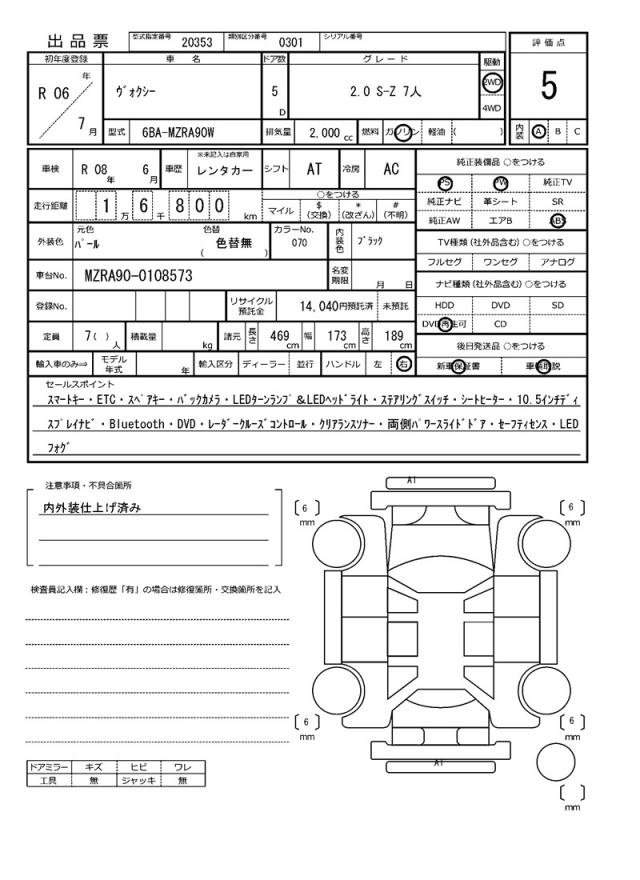 出 品 票 型式指定番号 20353 類別区分番号 0301 シリアル番号
初年度登録 車 名 ドア数 グ レ ー ド 駆動 評 価 点
R 06 年 7 月 ヴォクシー 5 D 2.0 S-Z 7人 2WD 4WD 5
型式 6BA-MZRA90W 排気量 2,000 cc 燃料 ガソリン 軽油 ( ) 内装 A B C
車検 R 08 年 6 月 車歴 ※未記入は自家用 レンタカー シフト AT 冷房 AC 純正装備品 ○をつける
PS PW 純正TV
走行距離 1 万 6 千 8 0 0 km ○をつける マイル $ (交換) * (改ざん) # (不明) 純正ナビ 革シート SR
純正AW エアB ABS
外装色 元色 パール 色替 色替無 ( ) カラーNo. 070 内装色 ブラック TV種類 (社外品含む) ○をつける
フルセグ ワンセグ アナログ
車台No. MZRA90-0108573 名変期限 月 日 ナビ種類 (社外品含む) ○をつける
登録No. リサイクル預託金 14,040円預託済 未預託 HDD DVD SD
DVD再生可 CD
定員 7( ) 人 積載量 kg 諸元 長さ 469 cm 幅 173 cm 高さ 189 cm 後日発送品 ○をつける
輸入車のみ⇒ モデル年式 年 輸入区分 ディーラー 並行 ハンドル 左 右 新車保証書 車輌取説
セールスポイント
スマートキー・ETC・スペアキー・バックカメラ・LEDターンランプ&LEDヘッドライト・ステアリングスイッチ・シートヒーター・10.5インチディ
スプレイナビ・Bluetooth・DVD・レーダークルーズコントロール・クリアランスソナー・両側パワースライドドア・セーフティセンス・LED
フォグ
注意事項・不具合箇所
内外装仕上げ済み
検査員記入欄：修復歴「有」の場合は修復箇所・交換箇所を記入
A1
6 mm 6 mm
6 mm 6 mm
A1
mm
ドアミラー キズ ヒビ ワレ
工具 無 ジャッキ 無